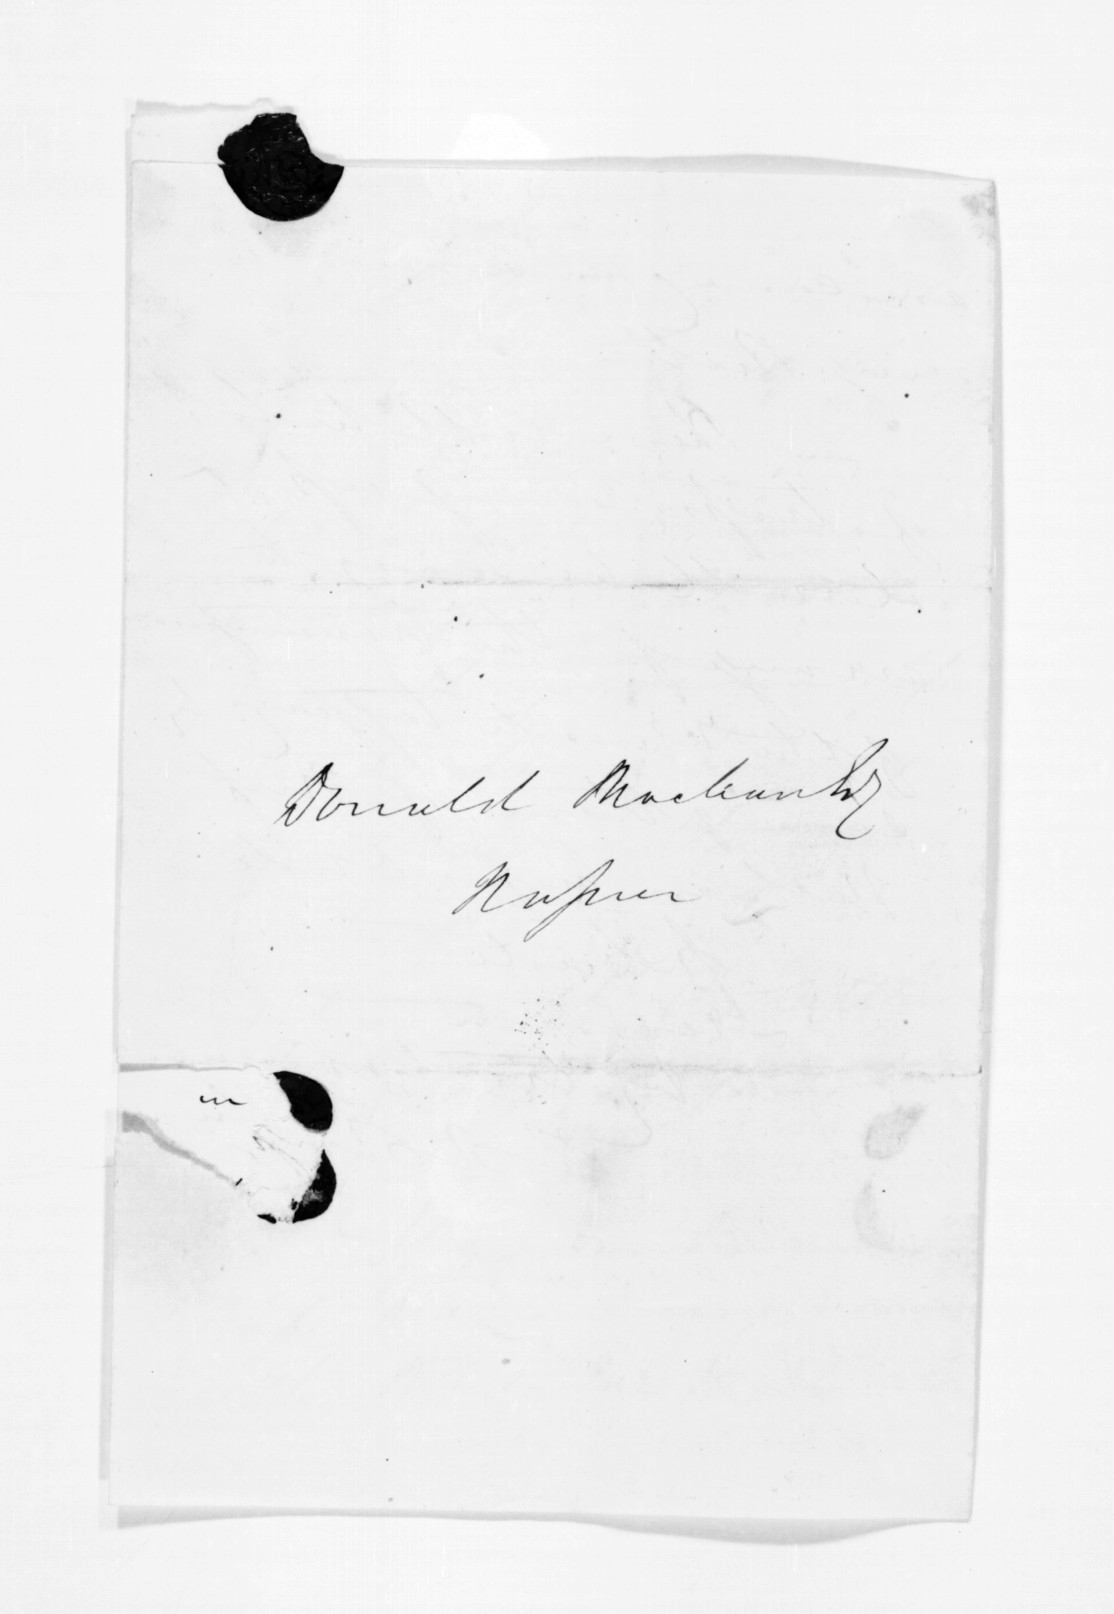 Donald Maclean Esq
Napier